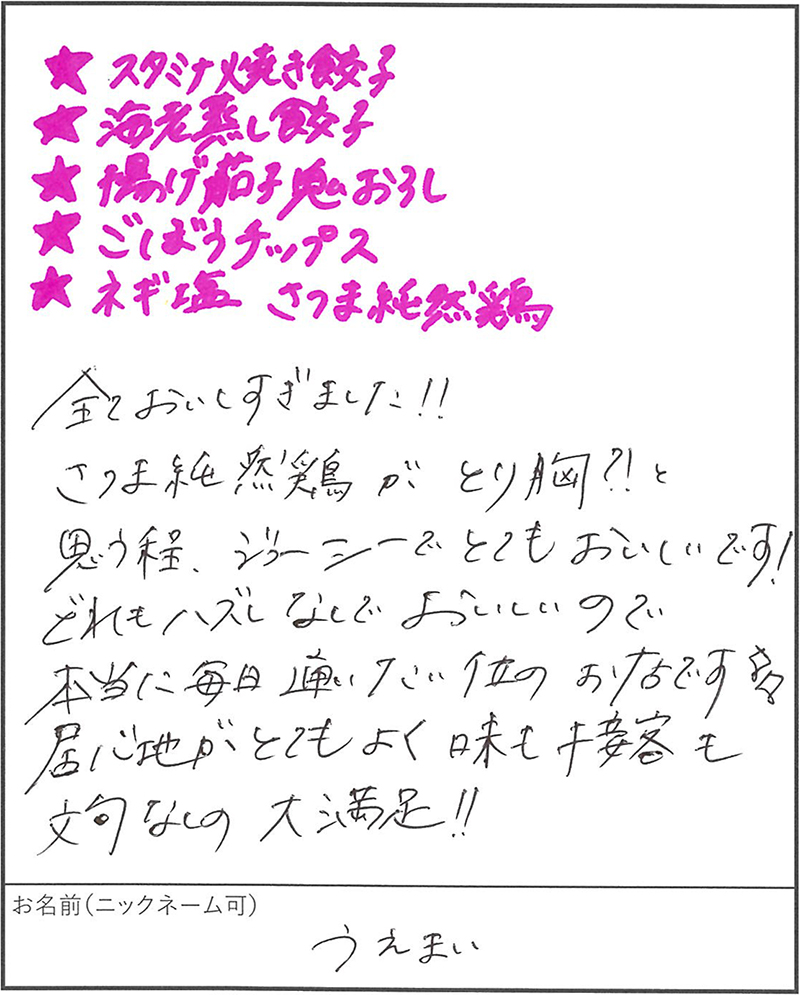 ★ スタミナ焼き餃子
★ 海老蒸し餃子
★ 揚げ茄子鬼おろし
★ ごぼうチップス
★ ネギ塩 さつま純然鶏
全ておいしすぎました!!
さつま純然鶏が とり胸?!と
思う程、ジューシーでとてもおいしいです!
どれもハズレなしでおいしいので
本当に毎日通いたい位のお店です
居心地がとてもよく味も接客も
文句なしの大満足!!
お名前(ニックネーム可)
うえまい